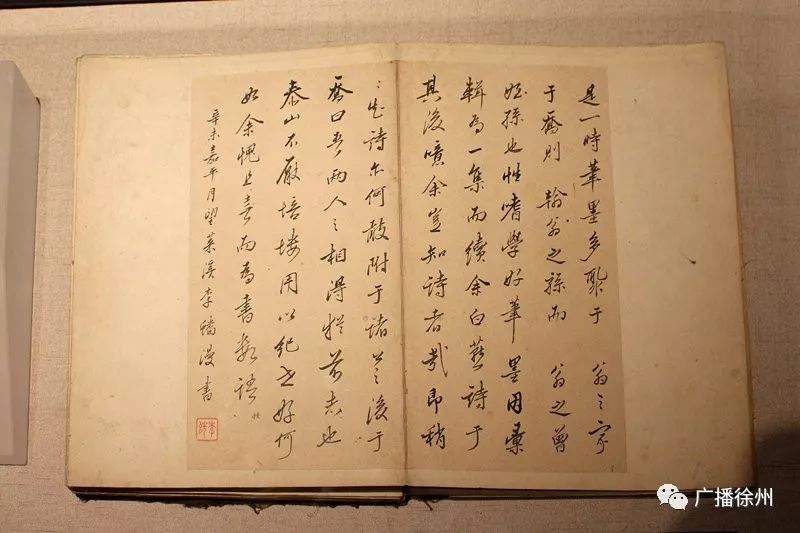 是一時筆墨多聚于 翁之家
于喬則 翰翁之孫而 翁之曾
姪孫也性嗜學好筆墨因彙
輯為一集而續余白燕詩于
其後噫余豈知詩者哉即稍
〻知詩亦何敢附于諸公之後于
喬曰吾兩人之相得猶前志也
泰山不厭培塿用以紀世好何
如余愧且喜而為書數語
辛未嘉平月望萊溪李蟠漫書
广播徐州